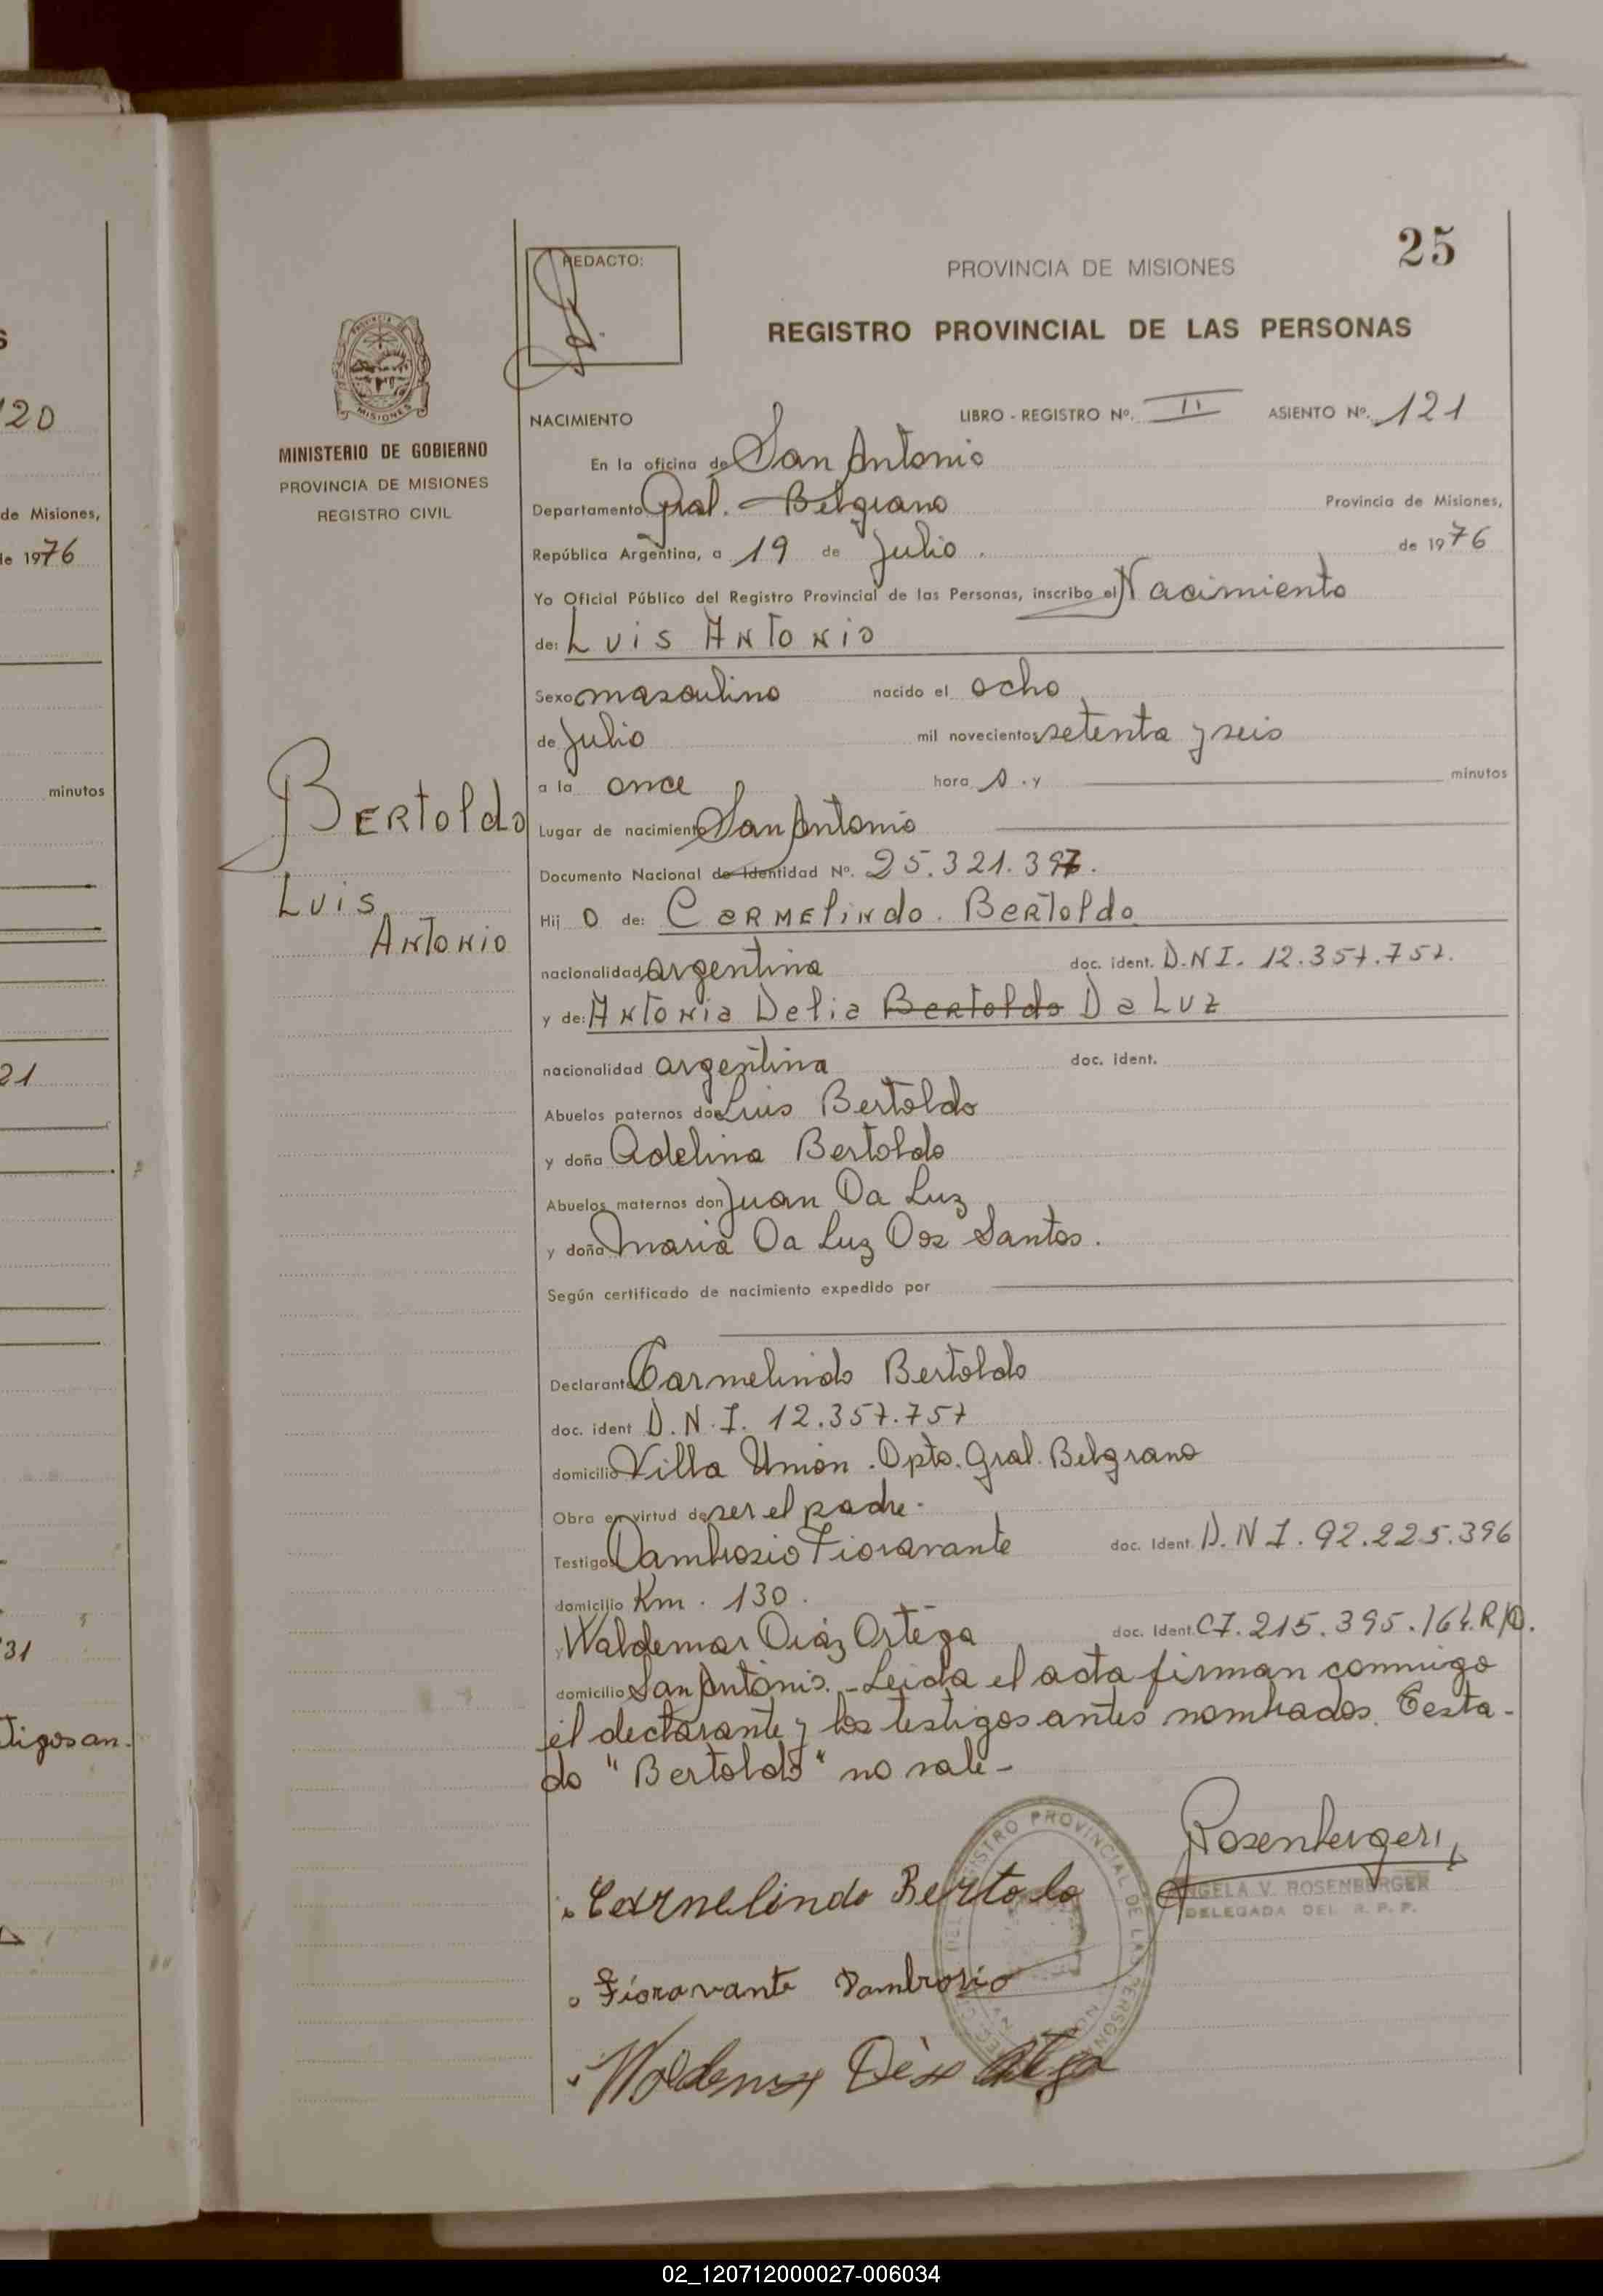 S
120
de Misiones,
de 1976
minutos
21
31
tigos an-
25
REDACTO:
PROVINCIA DE MISIONES
REGISTRO PROVINCIAL DE LAS PERSONAS
MISIONES
MINISTERIO DE GOBIERNO
PROVINCIA DE MISIONES
REGISTRO CIVIL
Bertoldo
Luis
Antonio
NACIMIENTO LIBRO - REGISTRO Nº. II ASIENTO Nº. 121
En la oficina de San Antonio
Departamento Gral. Belgrano Provincia de Misiones,
República Argentina, a 19 de Julio. de 1976
Yo Oficial Público del Registro Provincial de las Personas, inscribo el Nacimiento
de: Luis Antonio
Sexo masculino nacido el ocho
de Julio mil novecientos setenta y seis
a la once hora s. y minutos
Lugar de nacimiento San Antonio
Documento Nacional de Identidad Nº. 25.321.397.
Hij o de: Carmelindo. Bertoldo
nacionalidad argentina doc. ident. D.N.I. 12.357.757.
y de: Antonia Delia Bertoldo Da Luz
nacionalidad argentina doc. ident.
Abuelos paternos don Luis Bertoldo
y doña Adelina Bertoldo
Abuelos maternos don Juan Da Luz
y doña Maria Da Luz Dos Santos.
Según certificado de nacimiento expedido por
Declarante Carmelindo Bertoldo
doc. ident D.N.I. 12.357.757
domicilio Villa Unión. Dpto. Gral. Belgrano
Obra en virtud de ser el padre.
Testigos Dambrosio Fioravante doc. Ident. D.N.I. 92.225.396
domicilio Km. 130.
y Waldemar Diáz Ortega doc. Ident. C7.215.395.164.R/O.
domicilio San Antonio. - Leida el acta firman conmigo
el declarante y los testigos antes nombrados. Testa-
do "Bertoldo" no vale-
Rosenberger
ANGELA V. ROSENBERGER
DELEGADA DEL R. P. P.
REGISTRO PROVINCIAL DE LAS PERSON
Carmelindo Bertoldo
Fioravante Dambrosio
Waldemar Diáz Ortega
02_120712000027-006034